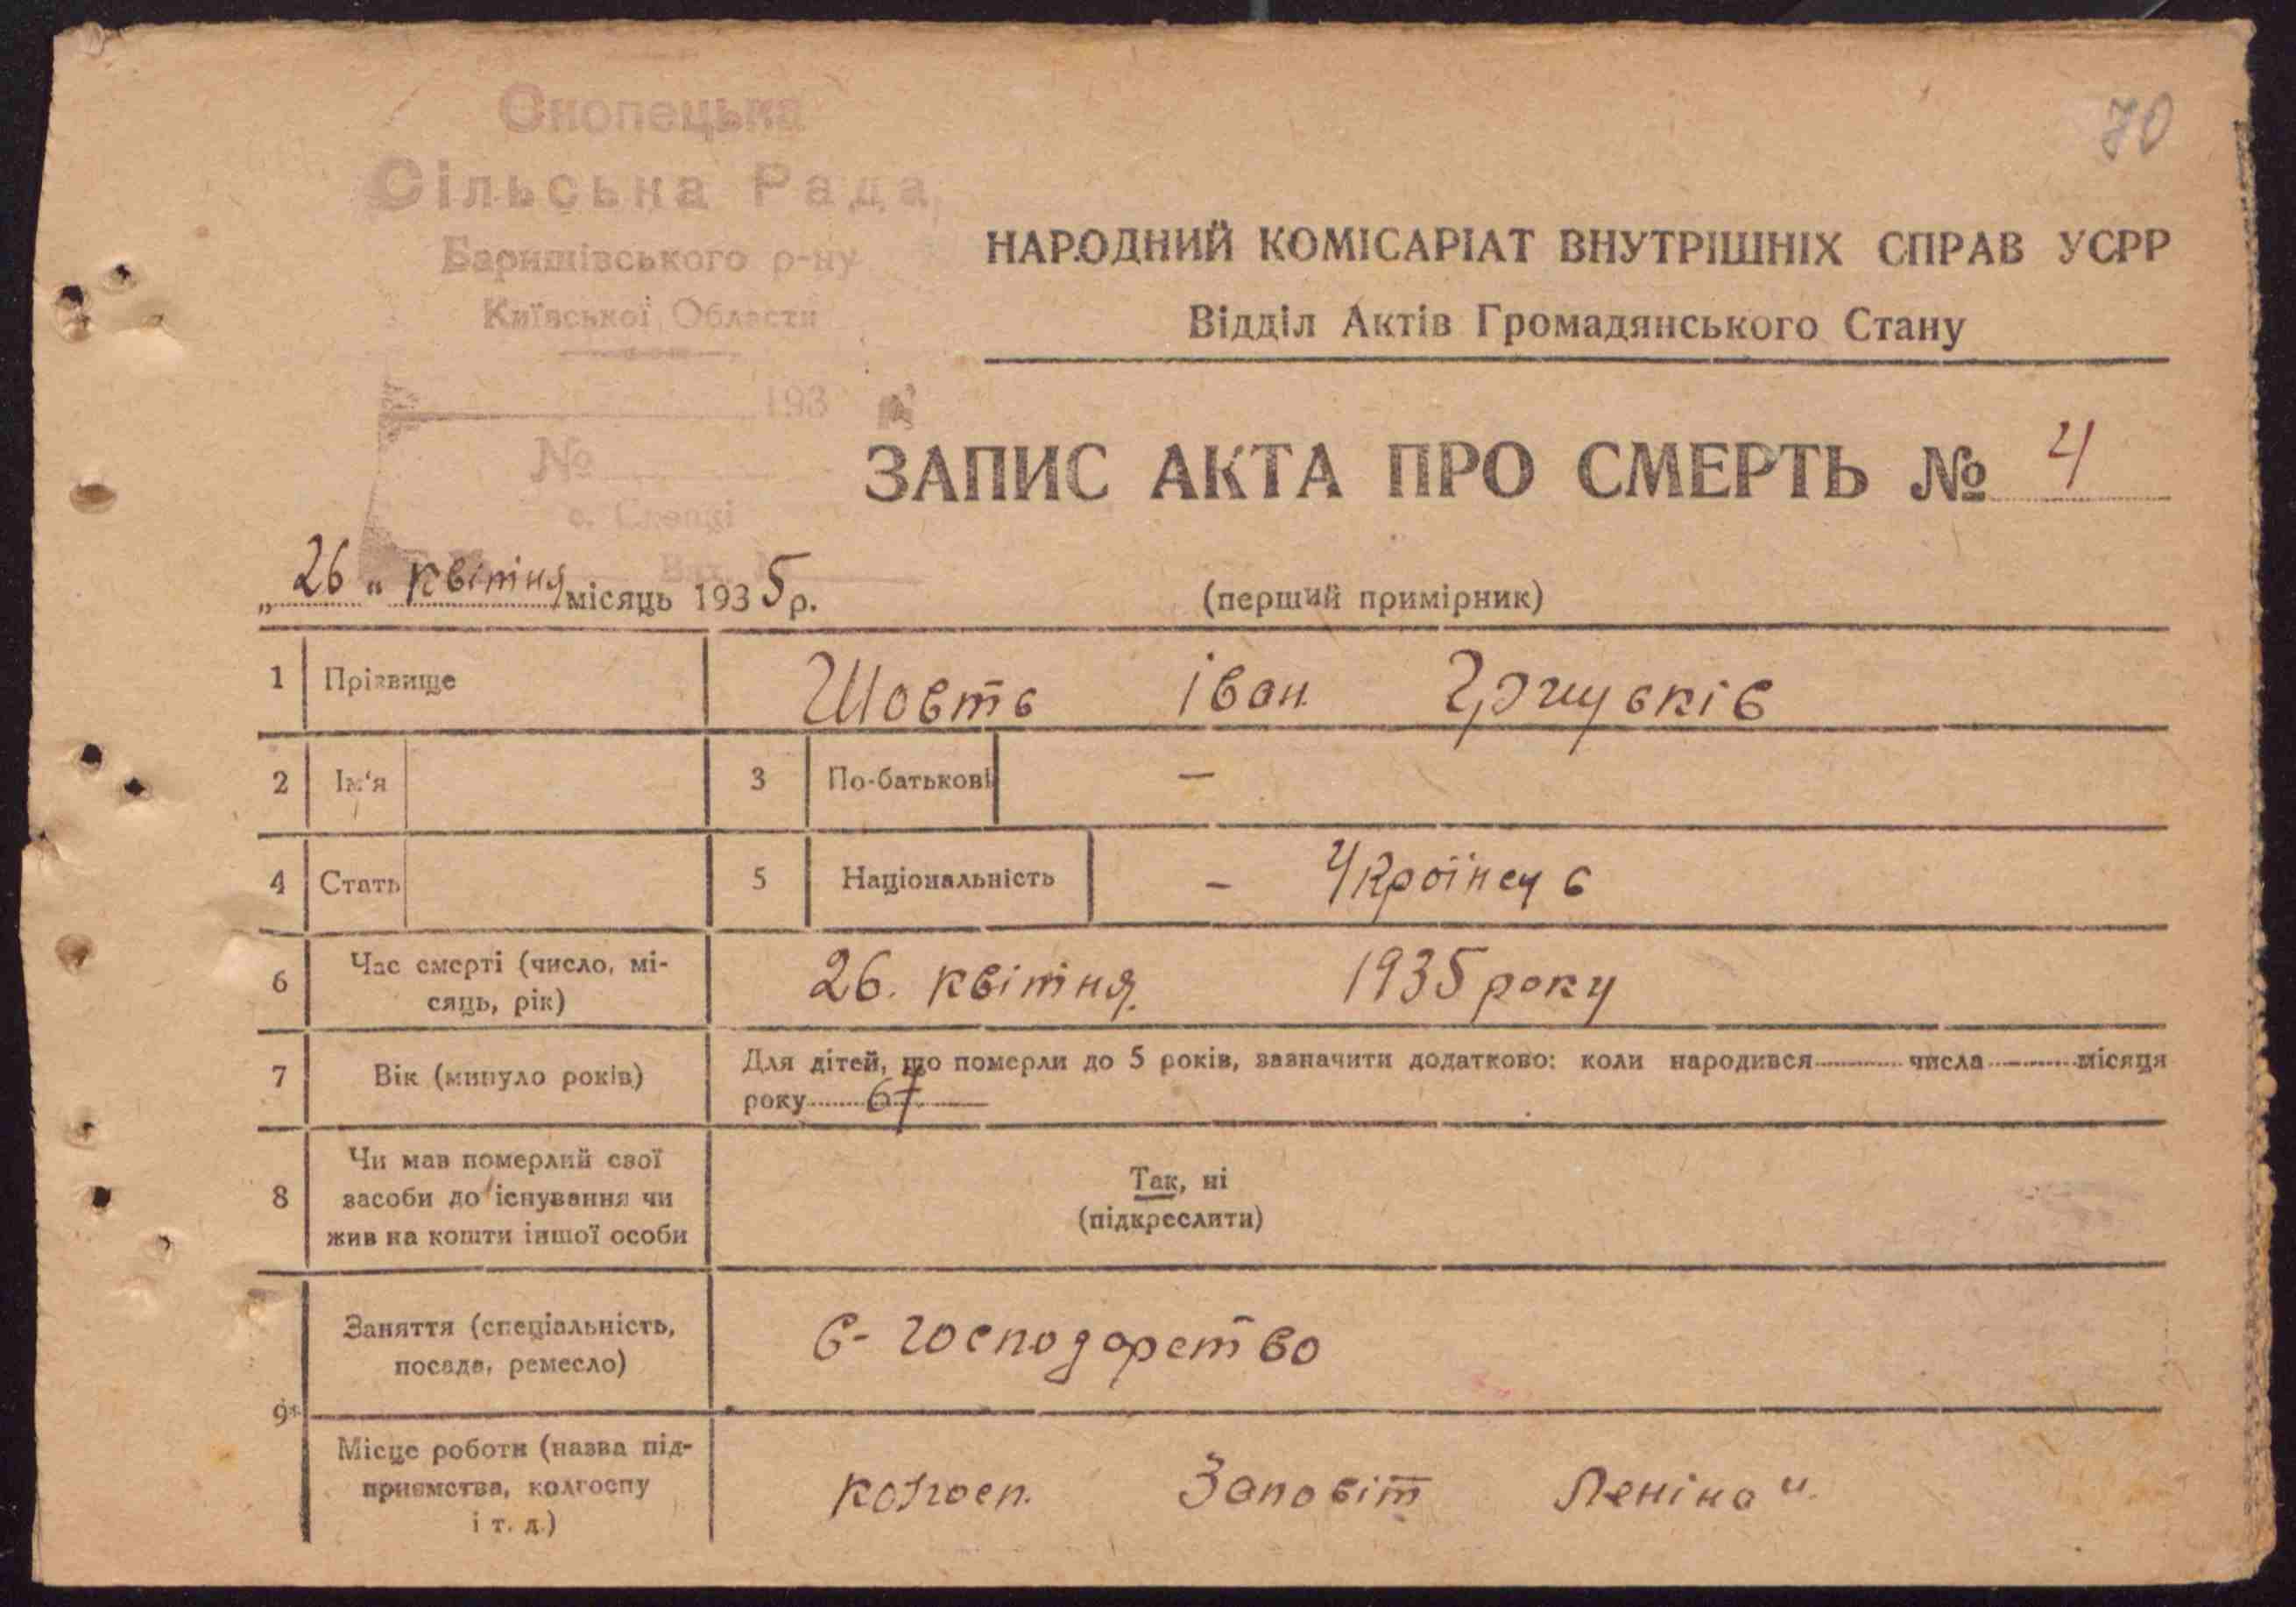 70
Сільська Рада
Баришівського р-ну
Київської Области
193
№
НАРОДНИЙ КОМІСАРІАТ ВНУТРІШНІХ СПРАВ УСРР
Відділ Актів Громадянського Стану
ЗАПИС АКТА ПРО СМЕРТЬ № 4
„26" квітня місяць 1935 р.
(перший примірник)
1 Прізвище Шовть Іван
2 Ім'я 3 По-батькові —
4 Стать 5 Національність — Українець
6 Час смерті (число, мі-
сяць, рік) 26. квітня 1935 року
7 Вік (минуло років) Для дітей, що померли до 5 років, зазначити додатково: коли народився числа місяця
року 67
8 Чи мав померлий свої
засоби до існування чи
жив на кошти іншої особи
Так, ні
(підкреслити)
9 Заняття (спеціальність,
посада, ремесло) С-господарство
Місце роботи (назва під-
приємства, колгоспу
і т. д.) колгосп. Заповіт Леніна"